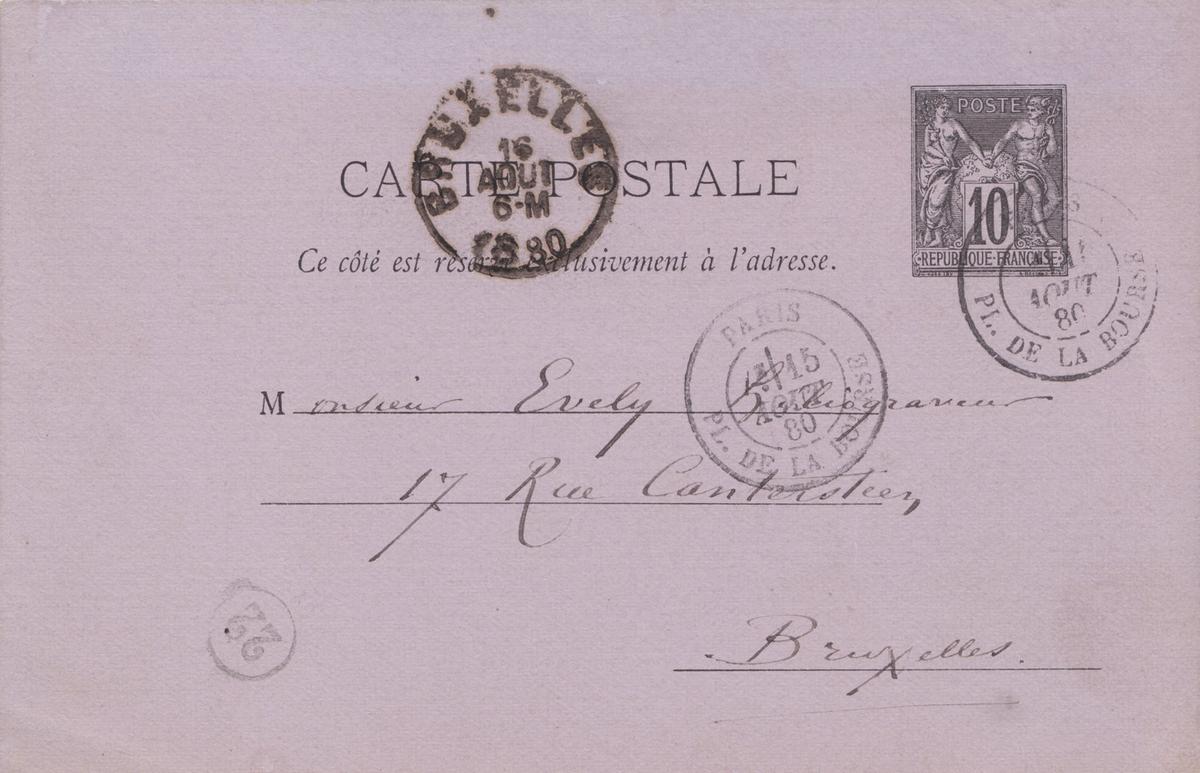 BRUXELLES
16
AOUT
6-M
1880
CARTE POSTALE
Ce côté est réservé exclusivement à l'adresse.
POSTE
10
REPUBLIQUE FRANÇAISE
AOUT
80
PL. DE LA BOURSE
PARIS
15
AOUT
80
PL. DE LA BOURSE
Monsieur Evely
17 Rue Cantersteen
Bruxelles.
22